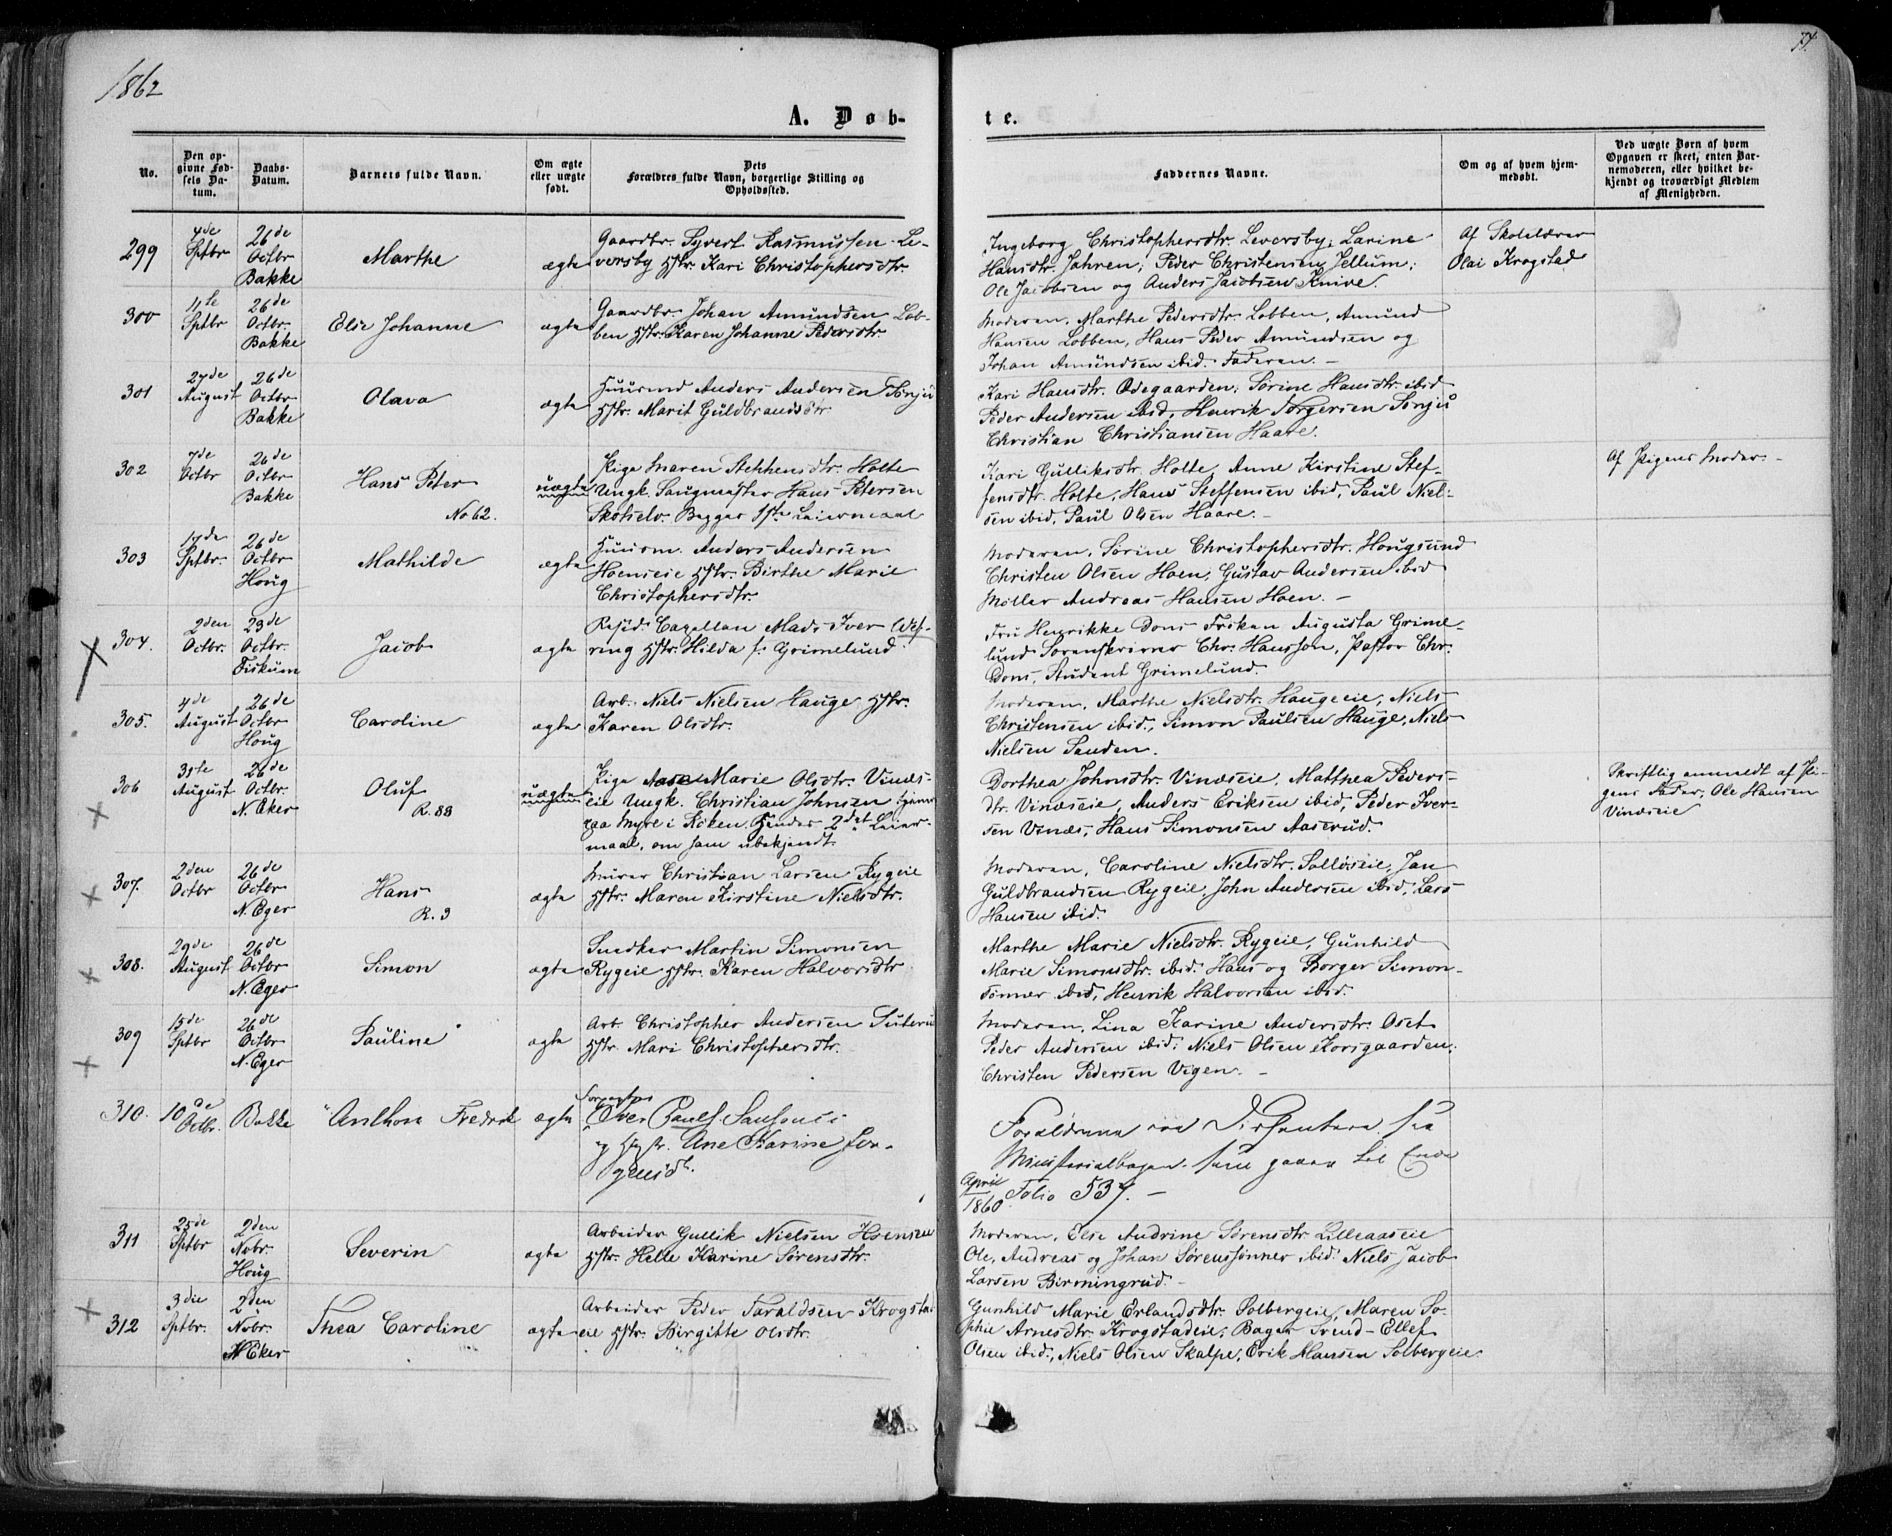 1862
77.
A. Døb-
te.
No.
Den op-
givne Fød-
sels Da-
tum.
Daabs-
Datum.
Barnets fulde Navn.
Om ægte
eller uægte
født.
Dets
Forældres fulde Navn, borgerlige Stilling og
Opholdssted.
Faddernes Navne.
Om og af hvem hjem-
medøbt.
Ved uægte Børn af hvem
Opgaven er skeet, enten Bar-
nemoderen, eller hvilket be-
kjendt og troværdigt Medlem
af Menigheden.
299
4de
Sptbr
26de
Octbr
Bakke
Marthe
ægte
Gaardbr. Syvert Rasmussen Le-
versby Hstr. Kari Christophersdtr.
Ingeborg Christophersdtr. Leversby, Larine
Hansdtr. Jahren, Peder Christensen Jellum,
Ole Jacobsen og Anders Jacobsen Knive.
Af Skolelærer
Olai Krogstad
300
11te
Sptbr
26de
Octbr.
Bakke
Else Johanne
ægte
Gaardbr. Johan Amundsen Lob-
ben Hstr. Karen Johanne Pedersdtr.
Moderen, Marthe Pedersdtr. Lobben, Amund
Hansen Lobben, Hans Peder Amundsen og
Johan Amundsen ibid. Faderen. -
301
27de
August
26de
Octbr
Bakke
Olava
ægte
Huusmd Anders Andersen
Hstr. Marit Guldbrandsdtr
Kari Hansdtr. Ødegaarden, Sørine Hansdtr. ibid
Peder Andersen ibid, Henrik
Christian Christiansen Haare.
302
7de
Octbr
26de
Octbr
Bakke
Hans Peter
No 62.
uægte
Pige Maren Steffensdtr. Holte
Ungk. Saugmester Hans Petersen
Skotselv. Begges 1ste Leiermaal
Kari Gulliksdtr. Holte, Anne Kirstine Stef-
fensdtr. Holte, Hans Steffensen ibid, Paul Niel-
sen ibid, Paul Olsen Haare. -
Af Pigens Moder -
303
17de
Sptbr.
26de
Octbr
Houg
Mathilde
ægte
Huusm. Anders Andersen
Hoenseie Hstr. Birthe Marie
Christophersdtr.
Moderen, Sørine Christophersdtr. Hougsund
Christen Olsen Hoen, Gustav Andersen ibid
Møller Andreas Hansen Hoen. -
304.
2den
Octbr.
23de
Octbr.
Fiskum
Jacob
ægte
Resid. Capellan Mads Iver Wef-
ring Hstr. Hilda f. Grimelund.
Fru Henrikke Dons Frøken Augusta Grime-
lund Sorenskriver Chr. Hansson, Pastor Chr.
Dons, Student Grimelund.
305.
4de
August
26de
Octbr
Houg
Caroline
ægte
Arb. Niels Nielsen Hauge Hstr.
Karen Olsdtr.
Moderen, Marthe Nielsdtr. Haugeeie, Niels
Christensen ibid., Simon Paulsen Hauge, Niels
Nielsen Sanden.
306
31te
August
26de
Octbr.
N. Eker
Oluf
R. 88
uægte
Pige Marie Olsdtr. Vinæs-
eie Ungk. Christian Johnsen tjener
paa Myre i Røken. Hendes 2det Leier-
maal, om ham ubekjendt.
Dorthea Johnsdtr. Vinæseie, Matthea Peders-
dtr. Vinæseie, Anders Eriksen ibid, Peder Iver-
sen Vinæs, Hans Simonsen Aaserud.
Skriftlig anmeldt af Pi-
gens Fader, Ole Hansen
Vinæseie
307.
2den
Octbr
26de
Octbr
N. Eger
Hans
R. 3
ægte
Murer Christian Larsen Rygeie
Hstr. Maren Kirstine Nielsdtr.
Moderen, Caroline Nielsdtr. Jan
Guldbrandsen Rygeie, John Andersen ibid, Lars
Hansen ibid.
308.
29de
August
26de
Octbr
N. Eger
Simon
ægte
Snedker Martin Simonsen
Rygeie Hstr. Karen Halvorsdtr
Marthe Marie Nielsdtr. Rygeie, Gunhild
Marie Simonsdtr. ibid. Hans og Borger Simon-
sønner ibid, Henrik Halvorsen ibid.
309
15de
Sptbr
26de
Octbr
N. Eger
Pauline
ægte
Arb. Christopher Andersen
Hstr. Mari Christophersdtr.
Moderen, Lina Karine Andersdtr. Oset
Peder Andersen ibid. Niels Olsen Korsgaarden.
Christen Pedersen Vigen. -
310.
10de
Octbr.
Bakke
Anthon Fredrik
ægte
Iver Pauls
og Hustr. Ane Karine Jør-
gensdtr.
Forældrene ere Dissentere. Se
Ministerialbogen som gaaer til Ende
April
1860. Folio 537. -
311
25de
Sptbr
2den
Nvbr.
Houg
Severin
ægte
Arbeider Gullik Nielsen
Hstr. Helle Karine Sørensdtr.
Moderen, Else Andrine Sørensdtr Lilleaaseie
Ole, Andreas og Johan Sørenssønner ibid. Niels Jacob
Larsen Birmingrud. -
312
3die
Sptbr.
2den
Nvbr.
N Eker
Thea Caroline
ægte
Arbeider Peder Taraldsen Krogstad
eie Hstr. Birgitte Olsdtr.
Gunhild Marie Erlandsdtr. Solbergeie, Maren So-
phie Arnesdtr. Krogstadeie, Bager Svend Ellef
Olsen ibid., Niels Olsen Skalpe, Erik Hansen Solbergeie.